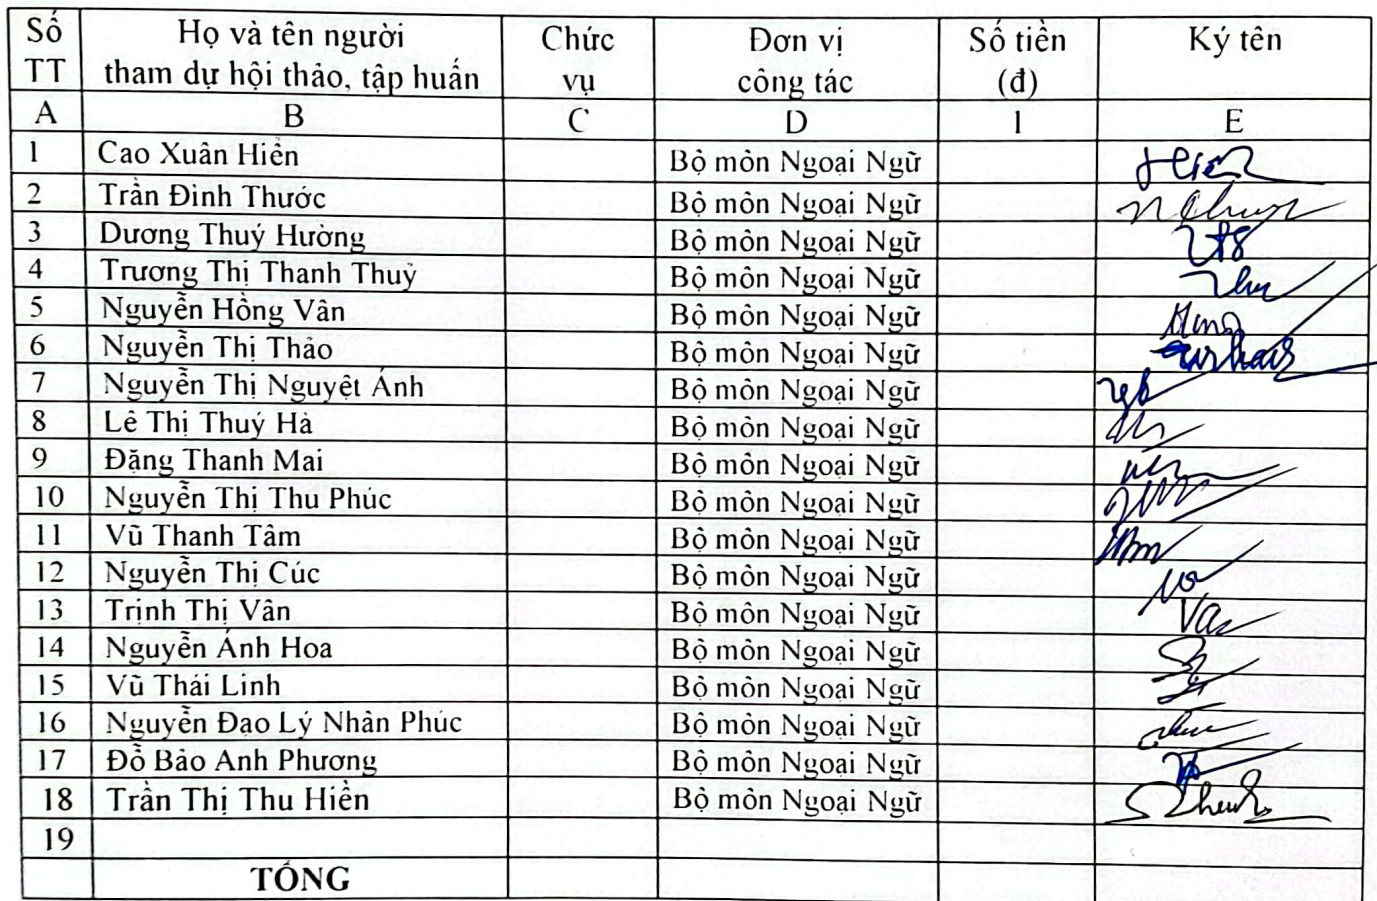 Số TT Họ và tên người tham dự hội thảo, tập huấn Chức vụ Đơn vị công tác Số tiền (đ) Ký tên
A B C D 1 E
1 Cao Xuân Hiển Bộ môn Ngoại Ngữ Hiển
2 Trần Đình Thước Bộ môn Ngoại Ngữ
3 Dương Thuý Hường Bộ môn Ngoại Ngữ
4 Trương Thị Thanh Thuỷ Bộ môn Ngoại Ngữ
5 Nguyễn Hồng Vân Bộ môn Ngoại Ngữ
6 Nguyễn Thị Thảo Bộ môn Ngoại Ngữ
7 Nguyễn Thị Nguyệt Ánh Bộ môn Ngoại Ngữ
8 Lê Thị Thuý Hà Bộ môn Ngoại Ngữ
9 Đặng Thanh Mai Bộ môn Ngoại Ngữ
10 Nguyễn Thị Thu Phúc Bộ môn Ngoại Ngữ
11 Vũ Thanh Tâm Bộ môn Ngoại Ngữ
12 Nguyễn Thị Cúc Bộ môn Ngoại Ngữ
13 Trịnh Thị Vân Bộ môn Ngoại Ngữ
14 Nguyễn Ánh Hoa Bộ môn Ngoại Ngữ
15 Vũ Thái Linh Bộ môn Ngoại Ngữ
16 Nguyễn Đạo Lý Nhân Phúc Bộ môn Ngoại Ngữ
17 Đỗ Bảo Anh Phương Bộ môn Ngoại Ngữ
18 Trần Thị Thu Hiền Bộ môn Ngoại Ngữ
19
TỔNG